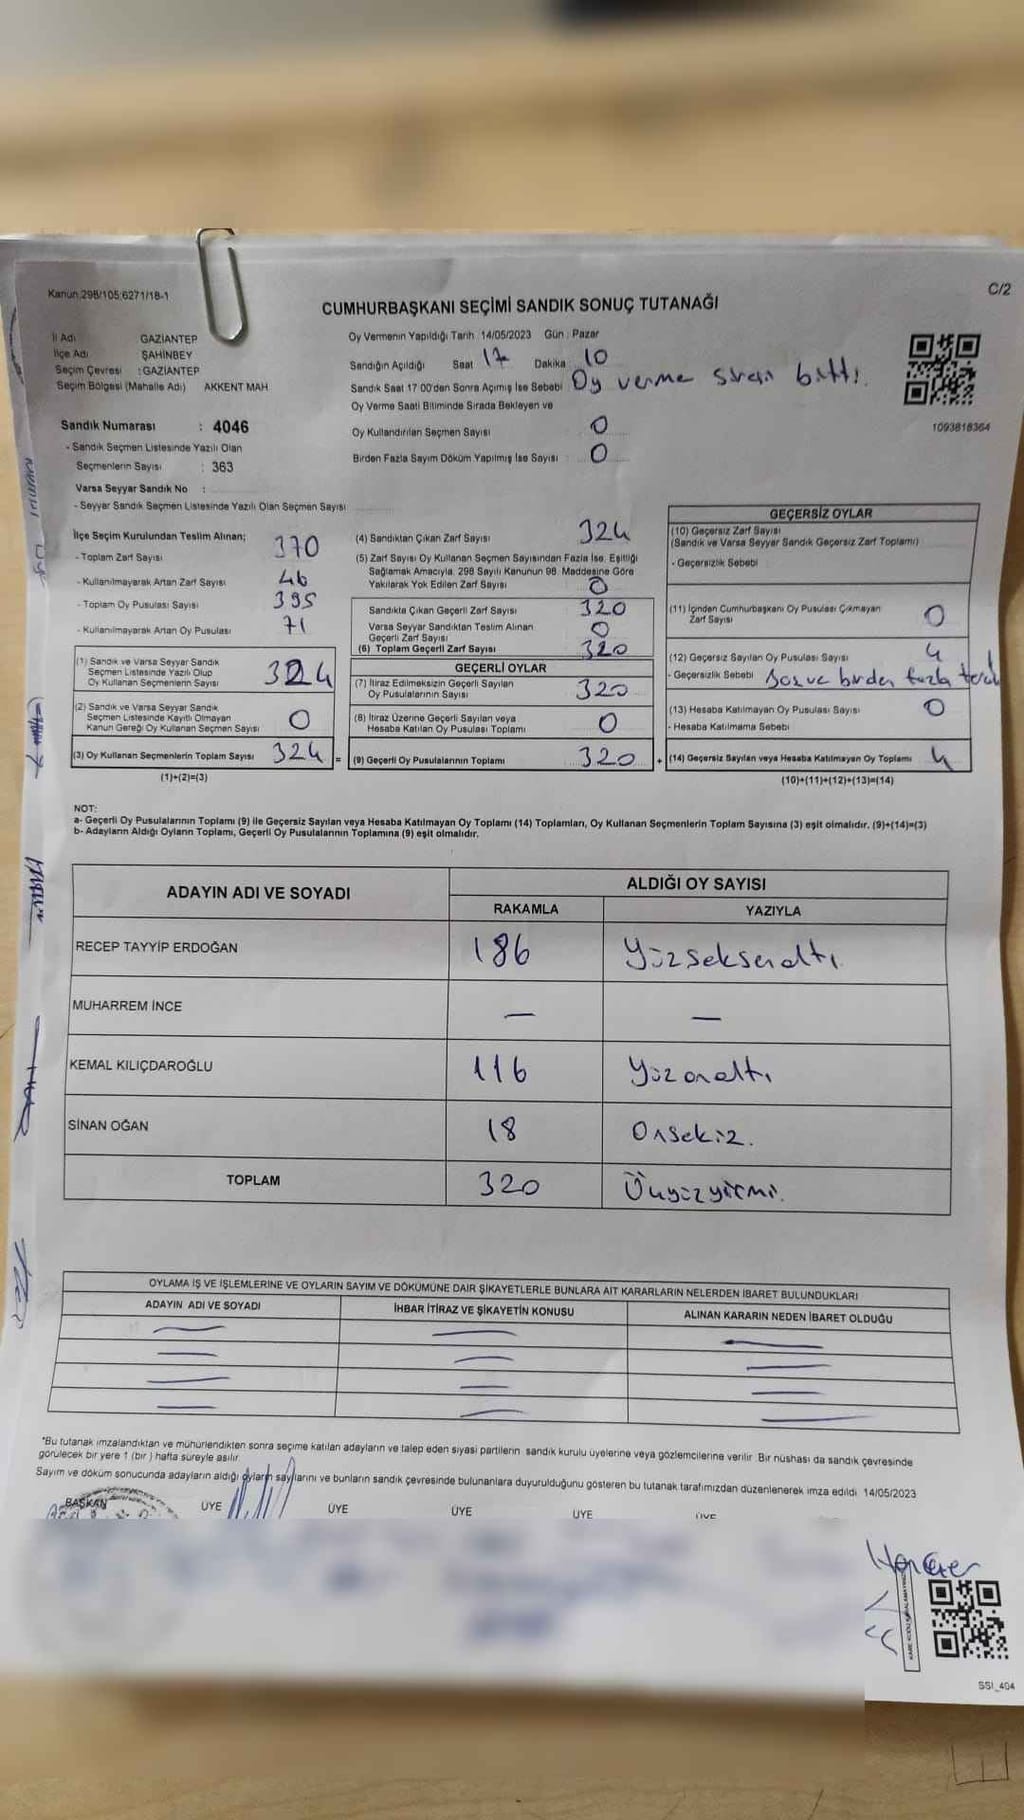 Kanun.298/105;6271/18-1
C/2
CUMHURBAŞKANI SEÇİMİ SANDIK SONUÇ TUTANAĞI
İl Adı GAZİANTEP
İlçe Adı ŞAHİNBEY
Seçim Çevresi : GAZİANTEP
Seçim Bölgesi (Mahalle Adı) AKKENT MAH
Sandık Numarası : 4046
- Sandık Seçmen Listesinde Yazılı Olan
Seçmenlerin Sayısı : 363
Varsa Seyyar Sandık No :
- Seyyar Sandık Seçmen Listesinde Yazılı Olan Seçmen Sayısı
Oy Vermenin Yapıldığı Tarih 14/05/2023 Gün : Pazar
Sandığın Açıldığı Saat 17 Dakika 10
Sandık Saat 17 00'den Sonra Açımış İse Sebebi Oy verme süresi bitti.
Oy Verme Saati Bitiminde Sırada Bekleyen ve
Oy Kullandırılan Seçmen Sayısı 0
Birden Fazla Sayım Döküm Yapılmış İse Sayısı 0
1093818364
İlçe Seçim Kurulundan Teslim Alınan;
- Toplam Zarf Sayısı 370
- Kullanılmayarak Artan Zarf Sayısı 46
- Toplam Oy Pusulası Sayısı 395
- Kullanılmayarak Artan Oy Pusulası 71
(1) Sandık ve Varsa Seyyar Sandık
Seçmen Listesinde Yazılı Olup
Oy Kullanan Seçmenlerin Sayısı 324
(2) Sandık ve Varsa Seyyar Sandık
Seçmen Listesinde Kayıtlı Olmayan
Kanun Gereği Oy Kullanan Seçmen Sayısı 0
(3) Oy Kullanan Seçmenlerin Toplam Sayısı 324 =
(1)+(2)=(3)
(4) Sandıktan Çıkan Zarf Sayısı 324
(5) Zarf Sayısı Oy Kullanan Seçmen Sayısından Fazla İse, Eşitliği
Sağlamak Amacıyla, 298 Sayılı Kanunun 98. Maddesine Göre
Yakılarak Yok Edilen Zarf Sayısı 0
Sandıkta Çıkan Geçerli Zarf Sayısı 320
Varsa Seyyar Sandıktan Teslim Alınan
Geçerli Zarf Sayısı 0
(6) Toplam Geçerli Zarf Sayısı 320
GEÇERLİ OYLAR
(7) İtiraz Edilmeksizin Geçerli Sayılan
Oy Pusulalarının Sayısı 320
(8) İtiraz Üzerine Geçerli Sayılan veya
Hesaba Katılan Oy Pusulası Toplamı 0
(9) Geçerli Oy Pusulalarının Toplamı 320 +
GEÇERSİZ OYLAR
(10) Geçersiz Zarf Sayısı
(Sandık ve Varsa Seyyar Sandık Geçersiz Zarf Toplamı)
- Geçersizlik Sebebi
(11) İçinden Cumhurbaşkanı Oy Pusulası Çıkmayan
Zarf Sayısı 0
(12) Geçersiz Sayılan Oy Pusulası Sayısı 4
- Geçersizlik Sebebi Boş ve birden fazla tercih
(13) Hesaba Katılmayan Oy Pusulası Sayısı 0
- Hesaba Katılmama Sebebi
(14) Geçersiz Sayılan veya Hesaba Katılmayan Oy Toplamı 4
(10)+(11)+(12)+(13)=(14)
NOT:
a- Geçerli Oy Pusulalarının Toplamı (9) ile Geçersiz Sayılan veya Hesaba Katılmayan Oy Toplamı (14) Toplamları, Oy Kullanan Seçmenlerin Toplam Sayısına (3) eşit olmalıdır. (9)+(14)=(3)
b- Adayların Aldığı Oyların Toplamı, Geçerli Oy Pusulalarının Toplamına (9) eşit olmalıdır.
ADAYIN ADI VE SOYADI ALDIĞI OY SAYISI
RAKAMLA YAZIYLA
RECEP TAYYİP ERDOĞAN 186 Yüzseksenaltı.
MUHARREM İNCE — —
KEMAL KILIÇDAROĞLU 116 Yüzonaltı
SİNAN OĞAN 18 Onsekiz.
TOPLAM 320 Üçyüzyirmi.
OYLAMA İŞ VE İŞLEMLERİNE VE OYLARIN SAYIM VE DÖKÜMÜNE DAİR ŞİKAYETLERLE BUNLARA AİT KARARLARIN NELERDEN İBARET BULUNDUKLARI
ADAYIN ADI VE SOYADI İHBAR İTİRAZ VE ŞİKAYETİN KONUSU ALINAN KARARIN NEDEN İBARET OLDUĞU
*Bu tutanak imzalandıktan ve mühürlendikten sonra seçime katılan adayların ve talep eden siyasi partilerin sandık kurulu üyelerine veya gözlemcilerine verilir. Bir nüshası da sandık çevresinde
görülecek bir yere 1 (bir) hafta süreyle asılır.
Sayım ve döküm sonucunda adayların aldığı oyların sayılarını ve bunların sandık çevresinde bulunanlara duyurulduğunu gösteren bu tutanak tarafımızdan düzenlenerek imza edildi. 14/05/2023
BAŞKAN ÜYE ÜYE ÜYE ÜYE ÜYE
SSI_404